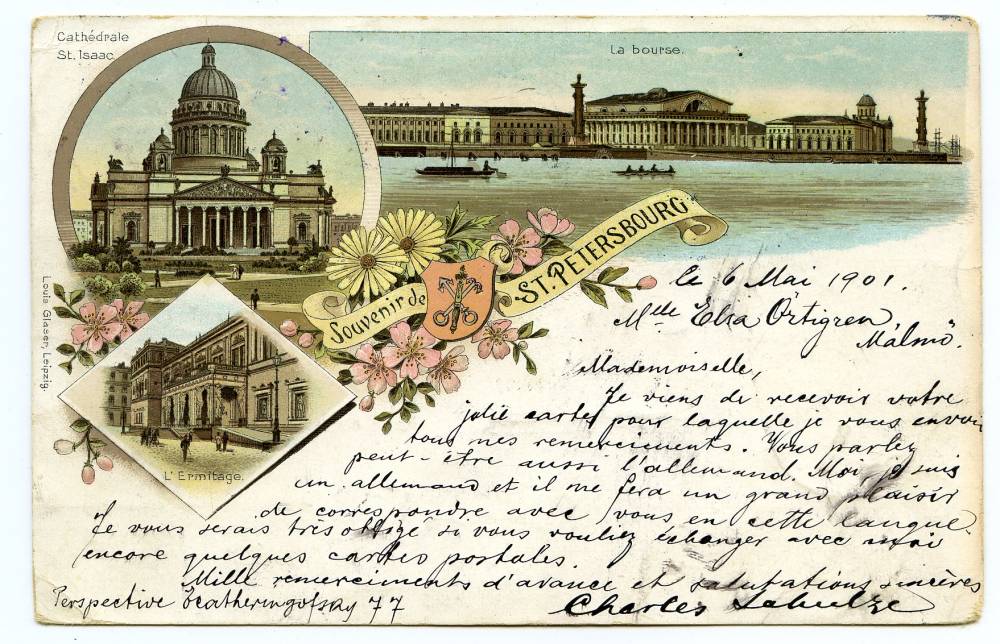 Cathédrale
St. Isaac.
La bourse.
Souvenir de
ST. PETERSBOURG
Louis Glaser, Leipzig.
L'Ermitage.
le 6 Mai 1901.
Mlle Elsa Örtigren,
Malmö.
Mademoiselle,
Je viens de recevoir votre
jolie carte pour laquelle je vous envoie
tous mes remerciments. Vous parlez
peut-être aussi l'allemand. Moi je suis
un allemand et il me fera un grand plaisir
de correspondre avec vous en cette langue.
Je vous serais très obligé si vous vouliez échanger avec moi
encore quelques cartes postales.
Mille remerciments d'avance et salutations sincères
Charles Schulze
Perspective 77